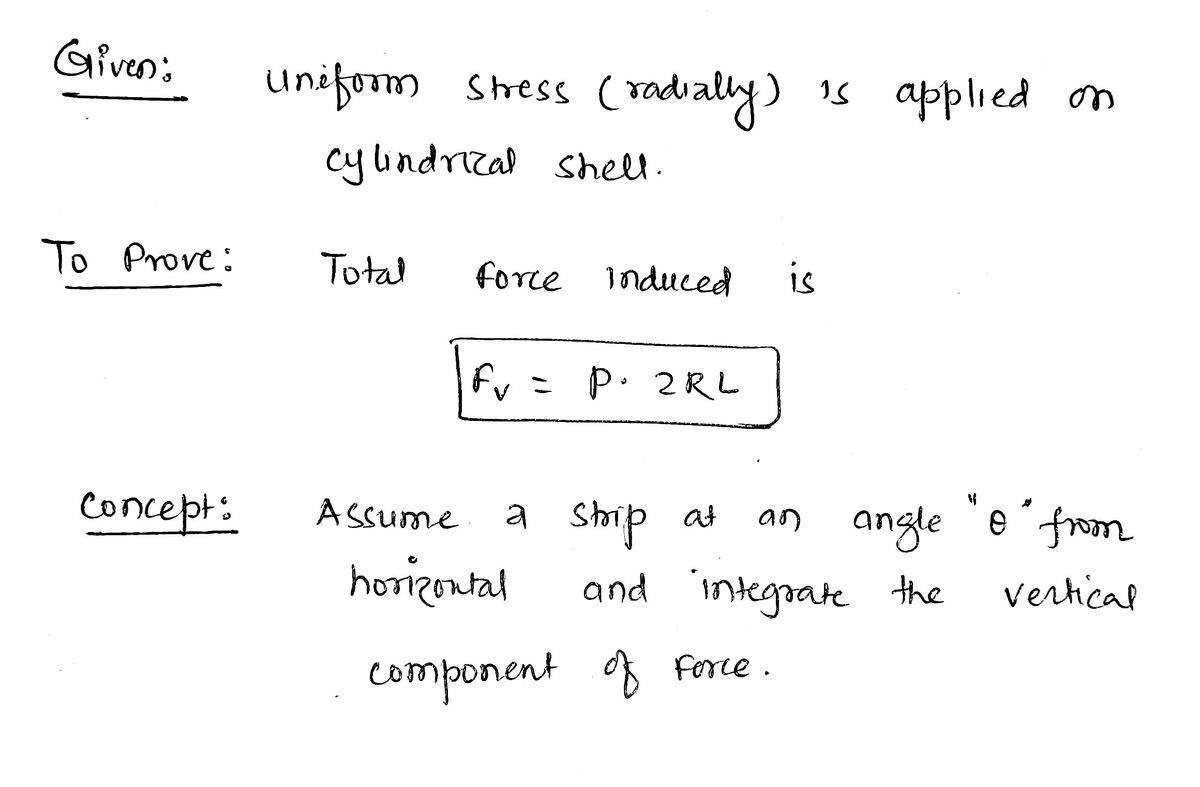 Given: uniform stress (radially) is applied on
cylindrical shell.
To Prove: Total force induced is
Fv = P. 2RL
Concept: Assume a strip at an angle "θ" from
horizontal and integrate the vertical
component of Force.